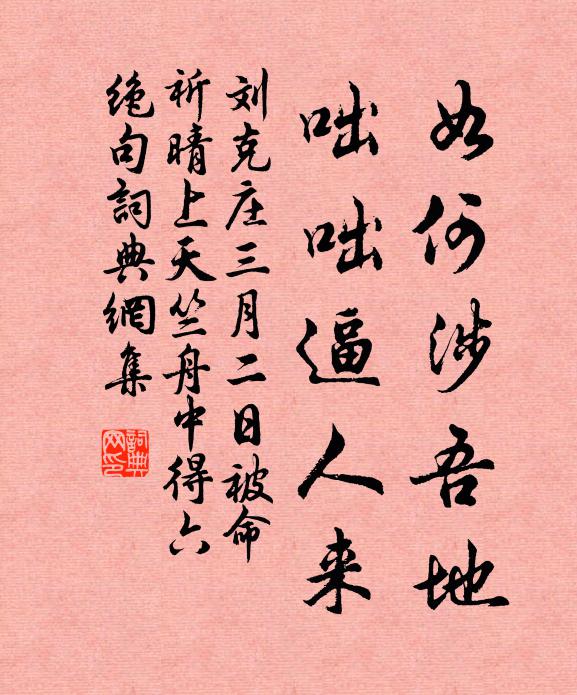 如何涉吾地
咄咄逼人来
刘克庄三月二日被命
祈晴上天竺舟中得六
绝句詞典網集
詞典
网印